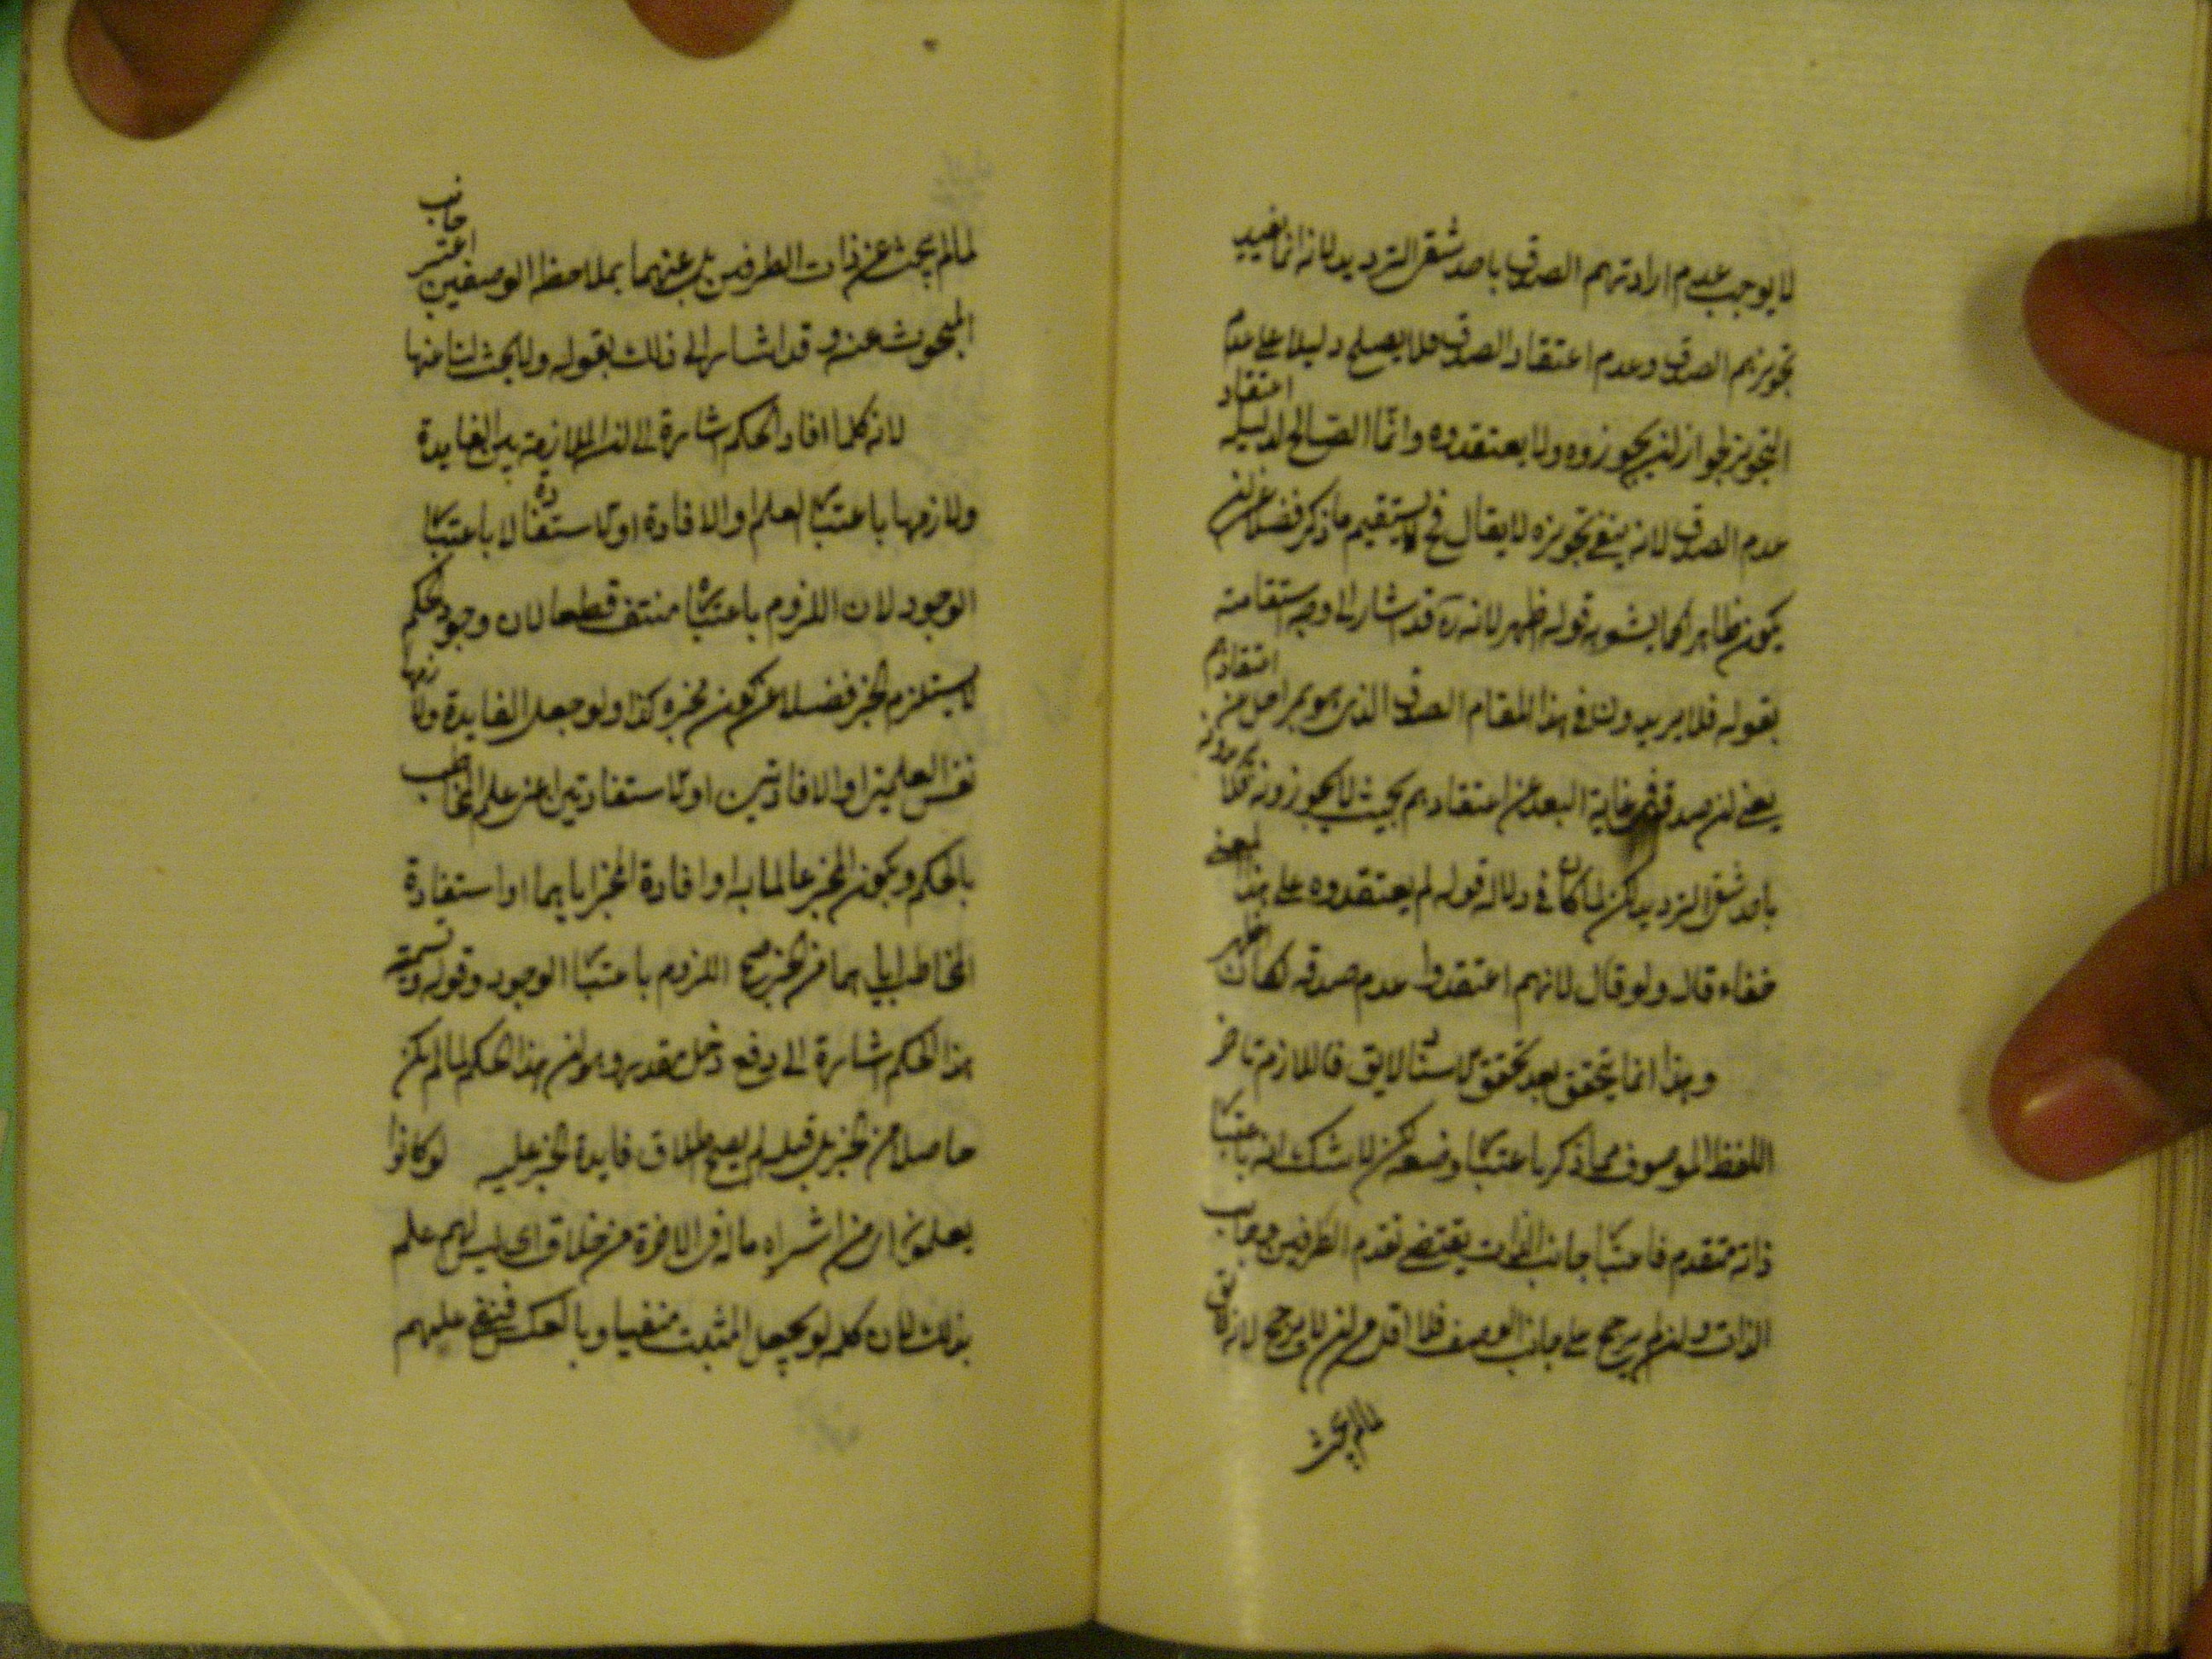 لا يوجب عدم ارادتهم الصدق باحد شقى الترديد لانه انما يفيد
تجويزهم الصدق وعدم اعتقاد الصدق فلا يصلح دليلا على عدم
التجويز لجواز ان يجوزوه ولا يعتقدوه وانما الصالح لدليله اعتقاد
عدم الصدق لانه ينفى تجويزه لا يقال فح لا يستقيم ما ذكر فضلا عن ان
يكون ظاهرا كما يشعر به قوله اظهر لانه ره قد اشار الى وجه استقامته
بقوله فلا يريدون فى هذا المقام الصدق الذى هو بمراحل من اعتقادهم
يعنى ان صدقه فى غاية البعد عن اعتقادهم بحيث لا يجوزونه فلا يريدونه
باحد شقى الترديد لكن لما كان فى دلالة قوله لم يعتقدوه على هذا المعنى
خفاء قال ولو قال لانهم اعتقدوا عدم صدقه لكان اظهر
وهذا انما يتحقق بعد تحقق الاسناد لا يق فاللازم تاخر
اللفظ الموصوف مما ذكر باعتبار وضعه لكن لا شك انه باعتبار
ذاته متقدم فاعتبار جانب الذات يقتضى تقدم الطرفين وجانب
الذات وان لم يرجح على جانب الوصف فلا اقل من ان لا يرجح لانه نق
لما لم يبحث
لما لم يبحث عن ذات الطرفين بل عنهما بملاحظة الوصفين اعتبر جانب
المبحوث عنه وقد اشار الى ذلك بقوله ولا بحث لنا عنها
لانه كلما افاد الحكم اشارة الى ان الملازمة بين الفايدة
ولازمها باعتبار العلم والافادة او الاستفادة لا باعتبار
الوجود لان اللزوم باعتباره منتف قطعا لان وجود الحكم
لا يستلزم الخبر فضلا عن كون مخبره كذا ولو جعل الفايدة ولازمها
نفس العلمين او الافادتين او الاستفادتين اعنى علم المخاطب
بالحكم وبكون المخبر عالما به او افادة المخبر اياهما او استفادة
المخاطب اياهما من الخبر صح اللزوم باعتبار الوجود وقوله وتسمية
هذا الحكم اشارة الى دفع دخل مقدر وهو ان هذا الحكم لما لم يكن
حاصلا من الخبر بل قبله لم يصح اطلاق فايدة الخبر عليه لو كانوا
يعلمون ان من اشتراه ما له فى الاخرة من خلاق اى ليس لهم علم
بذلك لان كلمة لو يجعل المثبت منفيا وبالعكس فنفى عليهم